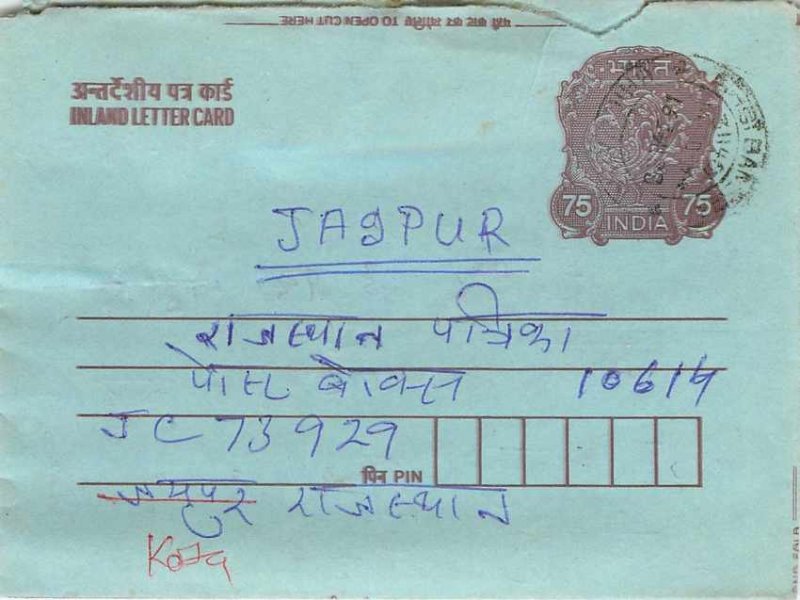 यहाँ काट कर खोलिए TO OPEN CUT HERE
भारत
अन्तर्देशीय पत्र कार्ड
INLAND LETTER CARD
75 INDIA 75
JAGPUR
राजस्थान पत्रिका
पोस्ट बोक्स 10614
JC 73929
पिन PIN
जयपुर राजस्थान
Kota